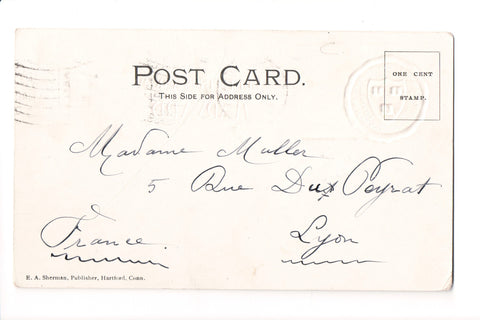 POST CARD.
THIS SIDE FOR ADDRESS ONLY.
ONE CENT
STAMP.
Madame Muller
5 Rue Peyrat
France.
Lyon
E. A. Sherman, Publisher, Hartford, Conn.